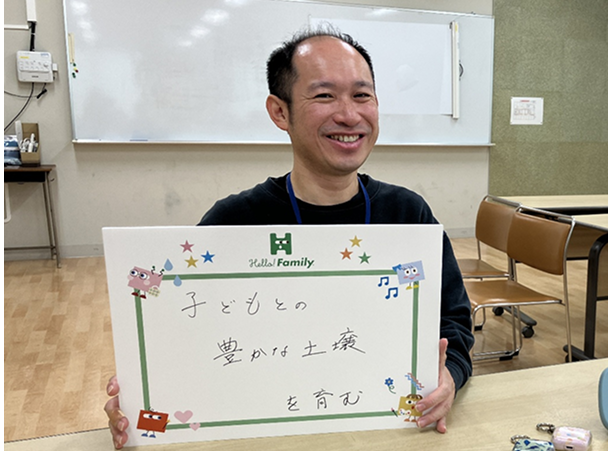 Hello! Family
子どもとの
豊かな土壌
を育む